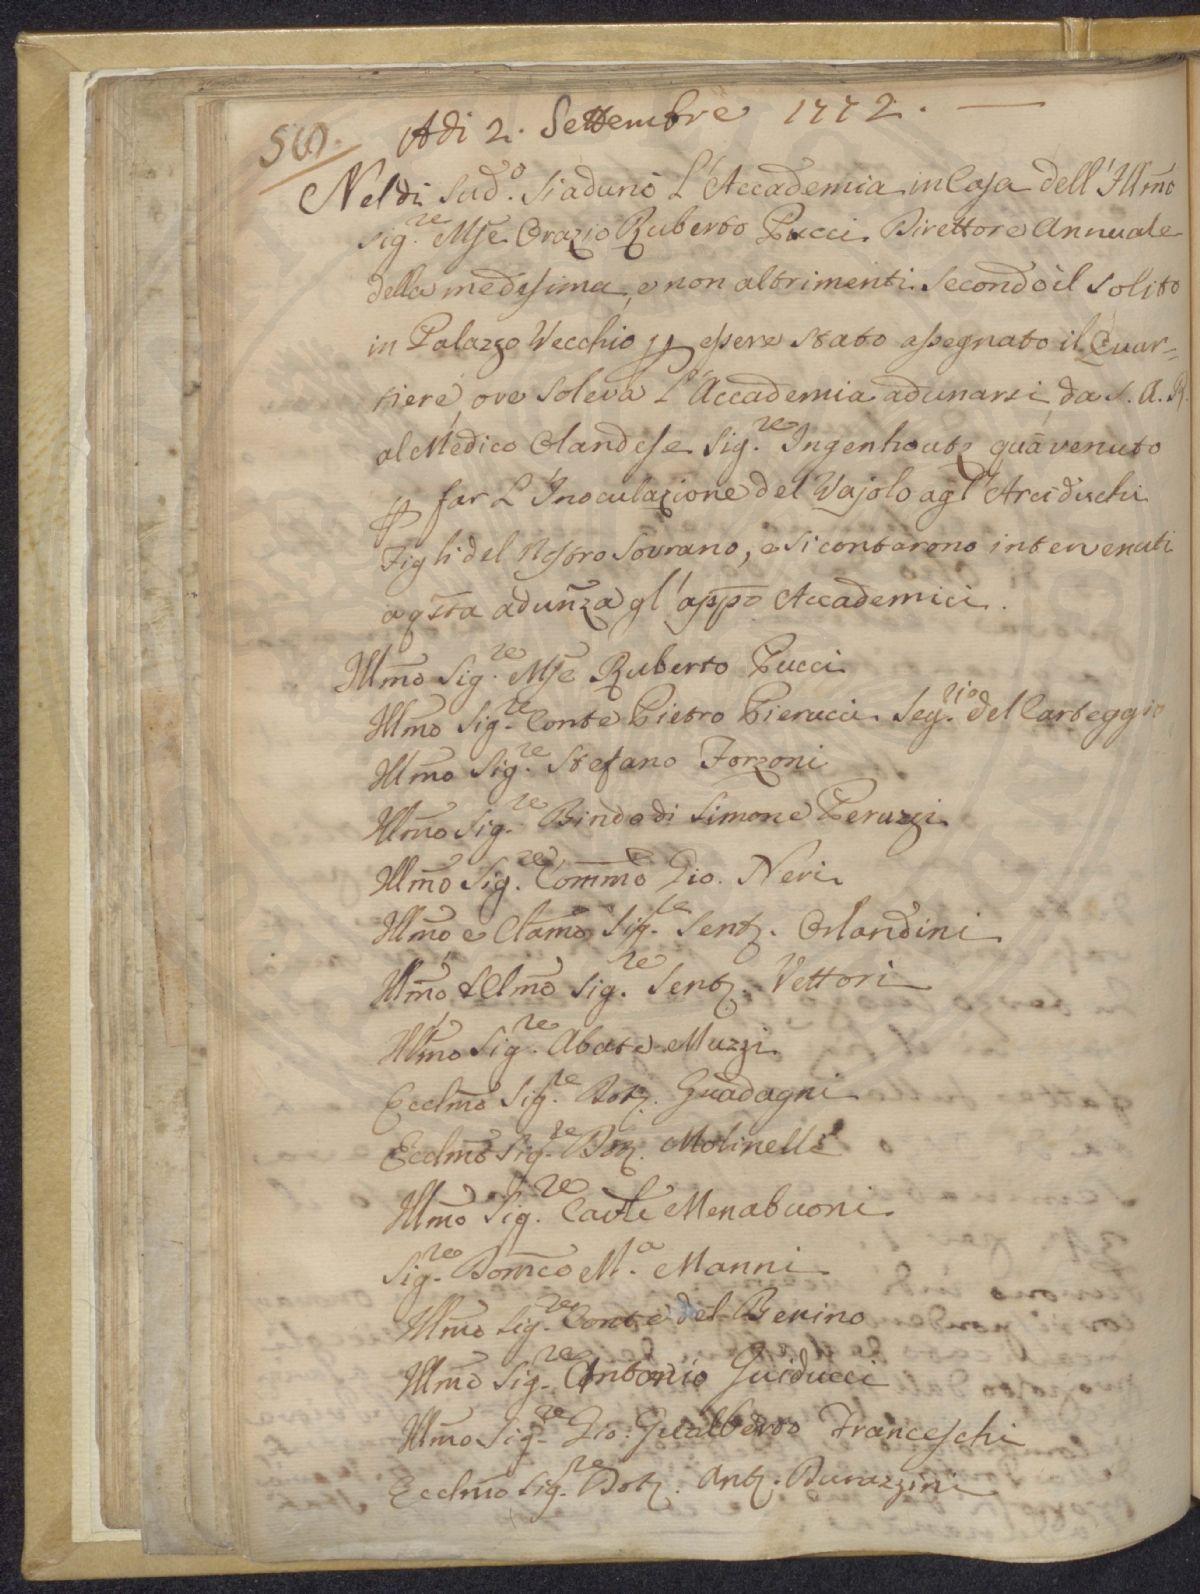 56.
Adi 2. Settembre 1772.
Nel dì Sud.º Si adunò L'Accademia in Casa dell'Illmo
Sig.re Mse Orazio Ruberto Pucci Direttore Annuale
della medesima, e non altrimenti Secondo il Solito
in Palazzo Vecchio p essere stato assegnato il Quar=
tiere, ove Soleva L'Accademia adunarsi da S. A. R.
al Medico Olandese Sig.re Ingenhoutz quà venuto
p far L'Inoculazione del Vajolo agl'Arciduchi
Figli del Nostro Sovrano, e Si contarono intervenuti
a qsta adunza gl'appo Accademici.
Illmo Sig.re Mse Ruberto Pucci
Illmo Sig.re Conte Pietro Pierucci Seg.rio del Carteggio
Illmo Sig.re Stefano Forzoni
Illmo Sig.re Bindo di Simone Peruzzi
Illmo Sig.re Commo Gio. Neri
Illmo e Clamo Sig.re Sen. Orlandini
Illmo e Clmo Sig.re Sen. Vettori
Illmo Sig.re Abate Muzzi
Ecclmo Sig.re Dott. Guadagni
Ecclmo Sig.re Dott. Molinelli
Illmo Sig.re Cavle Menabuoni
Sig.re Domco M.a Manni
Illmo Sig.re Conte del Benino
Illmo Sig.re Antonio Guiducci
Illmo Sig.re Gio. Gualberto Franceschi
Ecclmo Sig.re Dott. Ant. Durazzini